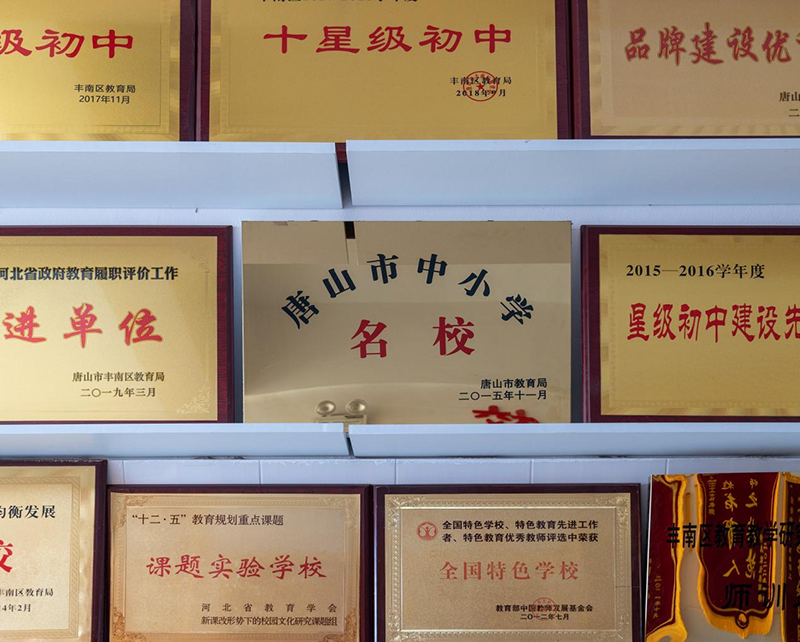 级初中
丰南区教育局
2017年11月
十星级初中
丰南区教育局
2018年9月
品牌建设优
唐山
二
河北省政府教育履职评价工作
进单位
唐山市丰南区教育局
二〇一九年三月
唐山市中小学
名校
唐山市教育局
二〇一五年十一月
2015—2016学年度
星级初中建设先
均衡发展
校
丰南区教育局
4年2月
“十二·五”教育规划重点课题
课题实验学校
河北省教育学会
新课改形势下的校园文化研究课题组
全国特色学校、特色教育先进工作
者、特色教育优秀教师评选中荣获
全国特色学校
教育部中国教师发展基金会
二〇一二年七月
丰南区教育教学研
师训